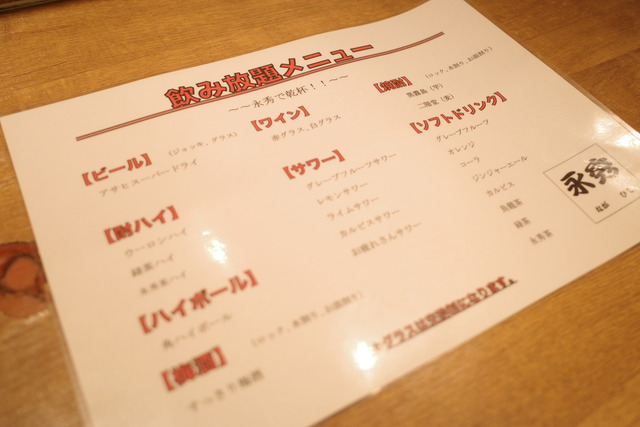 飲み放題メニュー
～～永秀で乾杯！！～～
【ビール】
（ジョッキ、グラス）
アサヒスーパードライ
【酎ハイ】
ウーロンハイ
緑茶ハイ
永秀茶ハイ
【ハイボール】
角ハイボール
【梅酒】
（ロック、水割り、お湯割り）
すっきり梅酒
【ワイン】
赤グラス、白グラス
【サワー】
グレープフルーツサワー
レモンサワー
ライムサワー
カルピスサワー
お疲れさんサワー
【焼酎】
（ロック、水割り、お湯割り）
黒霧島（芋）
二階堂（麦）
【ソフトドリンク】
グレープフルーツ
オレンジ
コーラ
ジンジャーエール
カルピス
烏龍茶
緑茶
永秀茶
永秀
＊グラスは交換制になります。